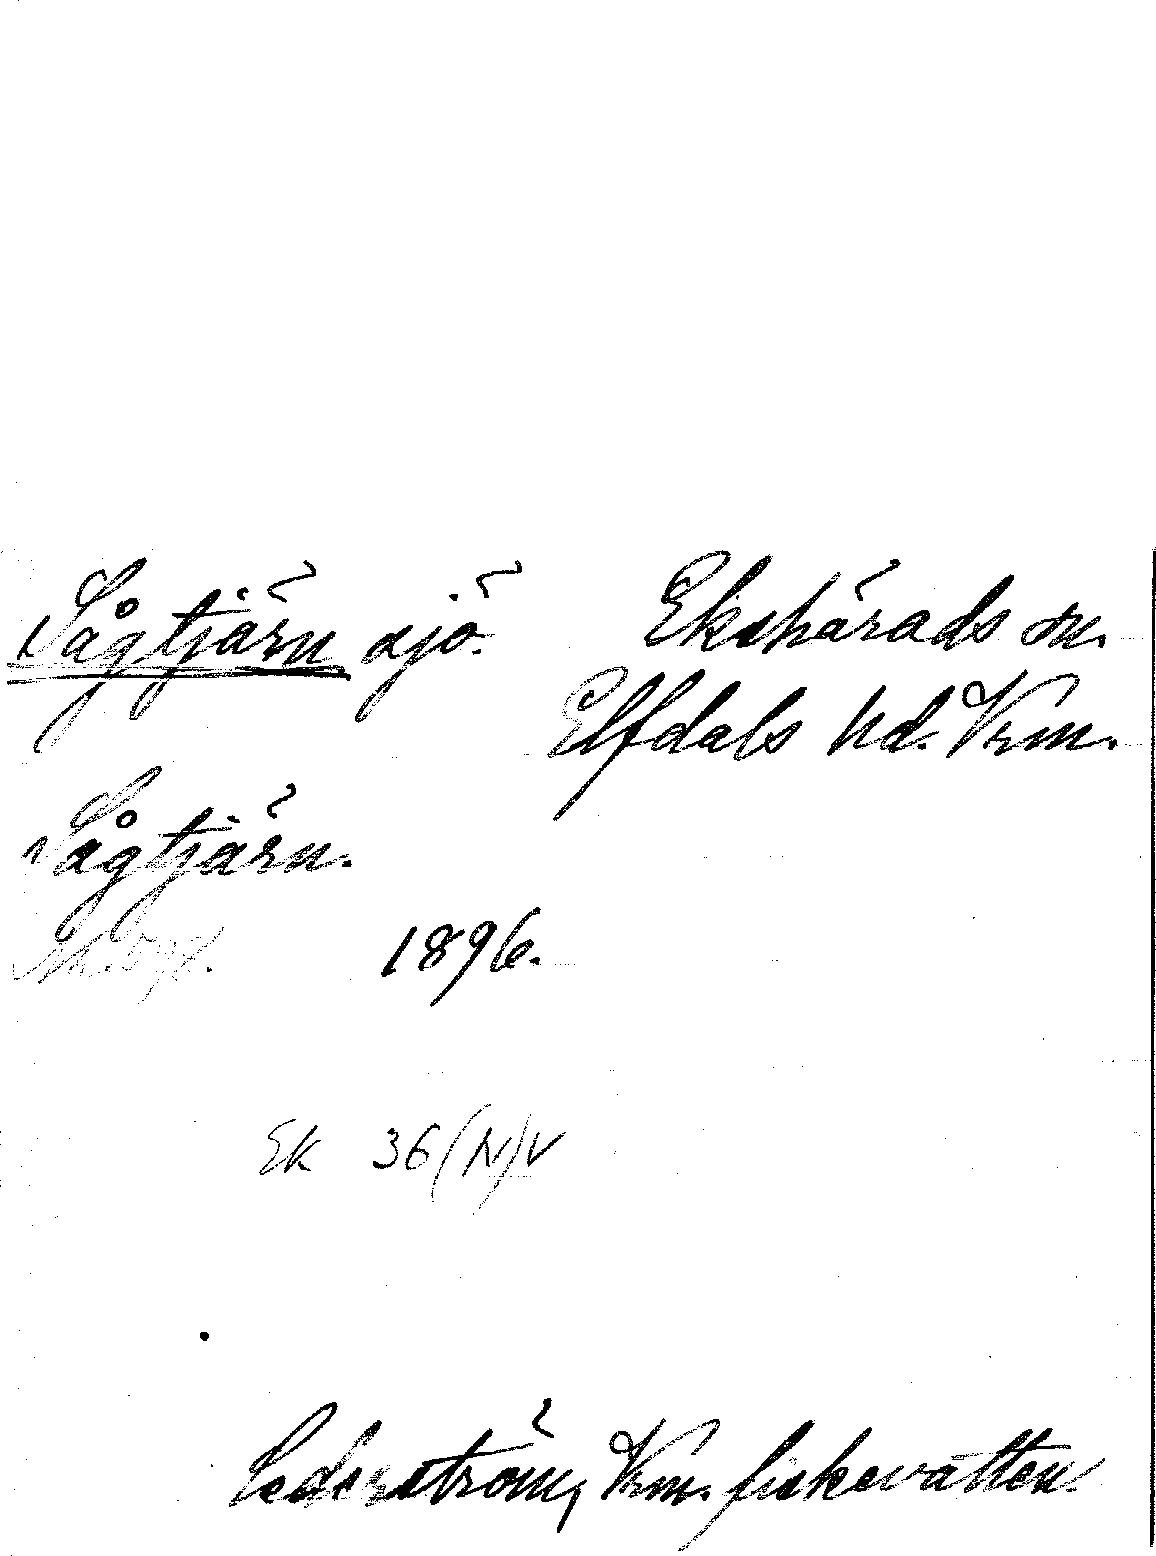 Sågtjärn sjö. Ekshärads sn.
Elfdals hd. Vrm.
Sågtjärn.
1896.
Ek 36 (N) v
Cederström, Vrm. fiskevatten.